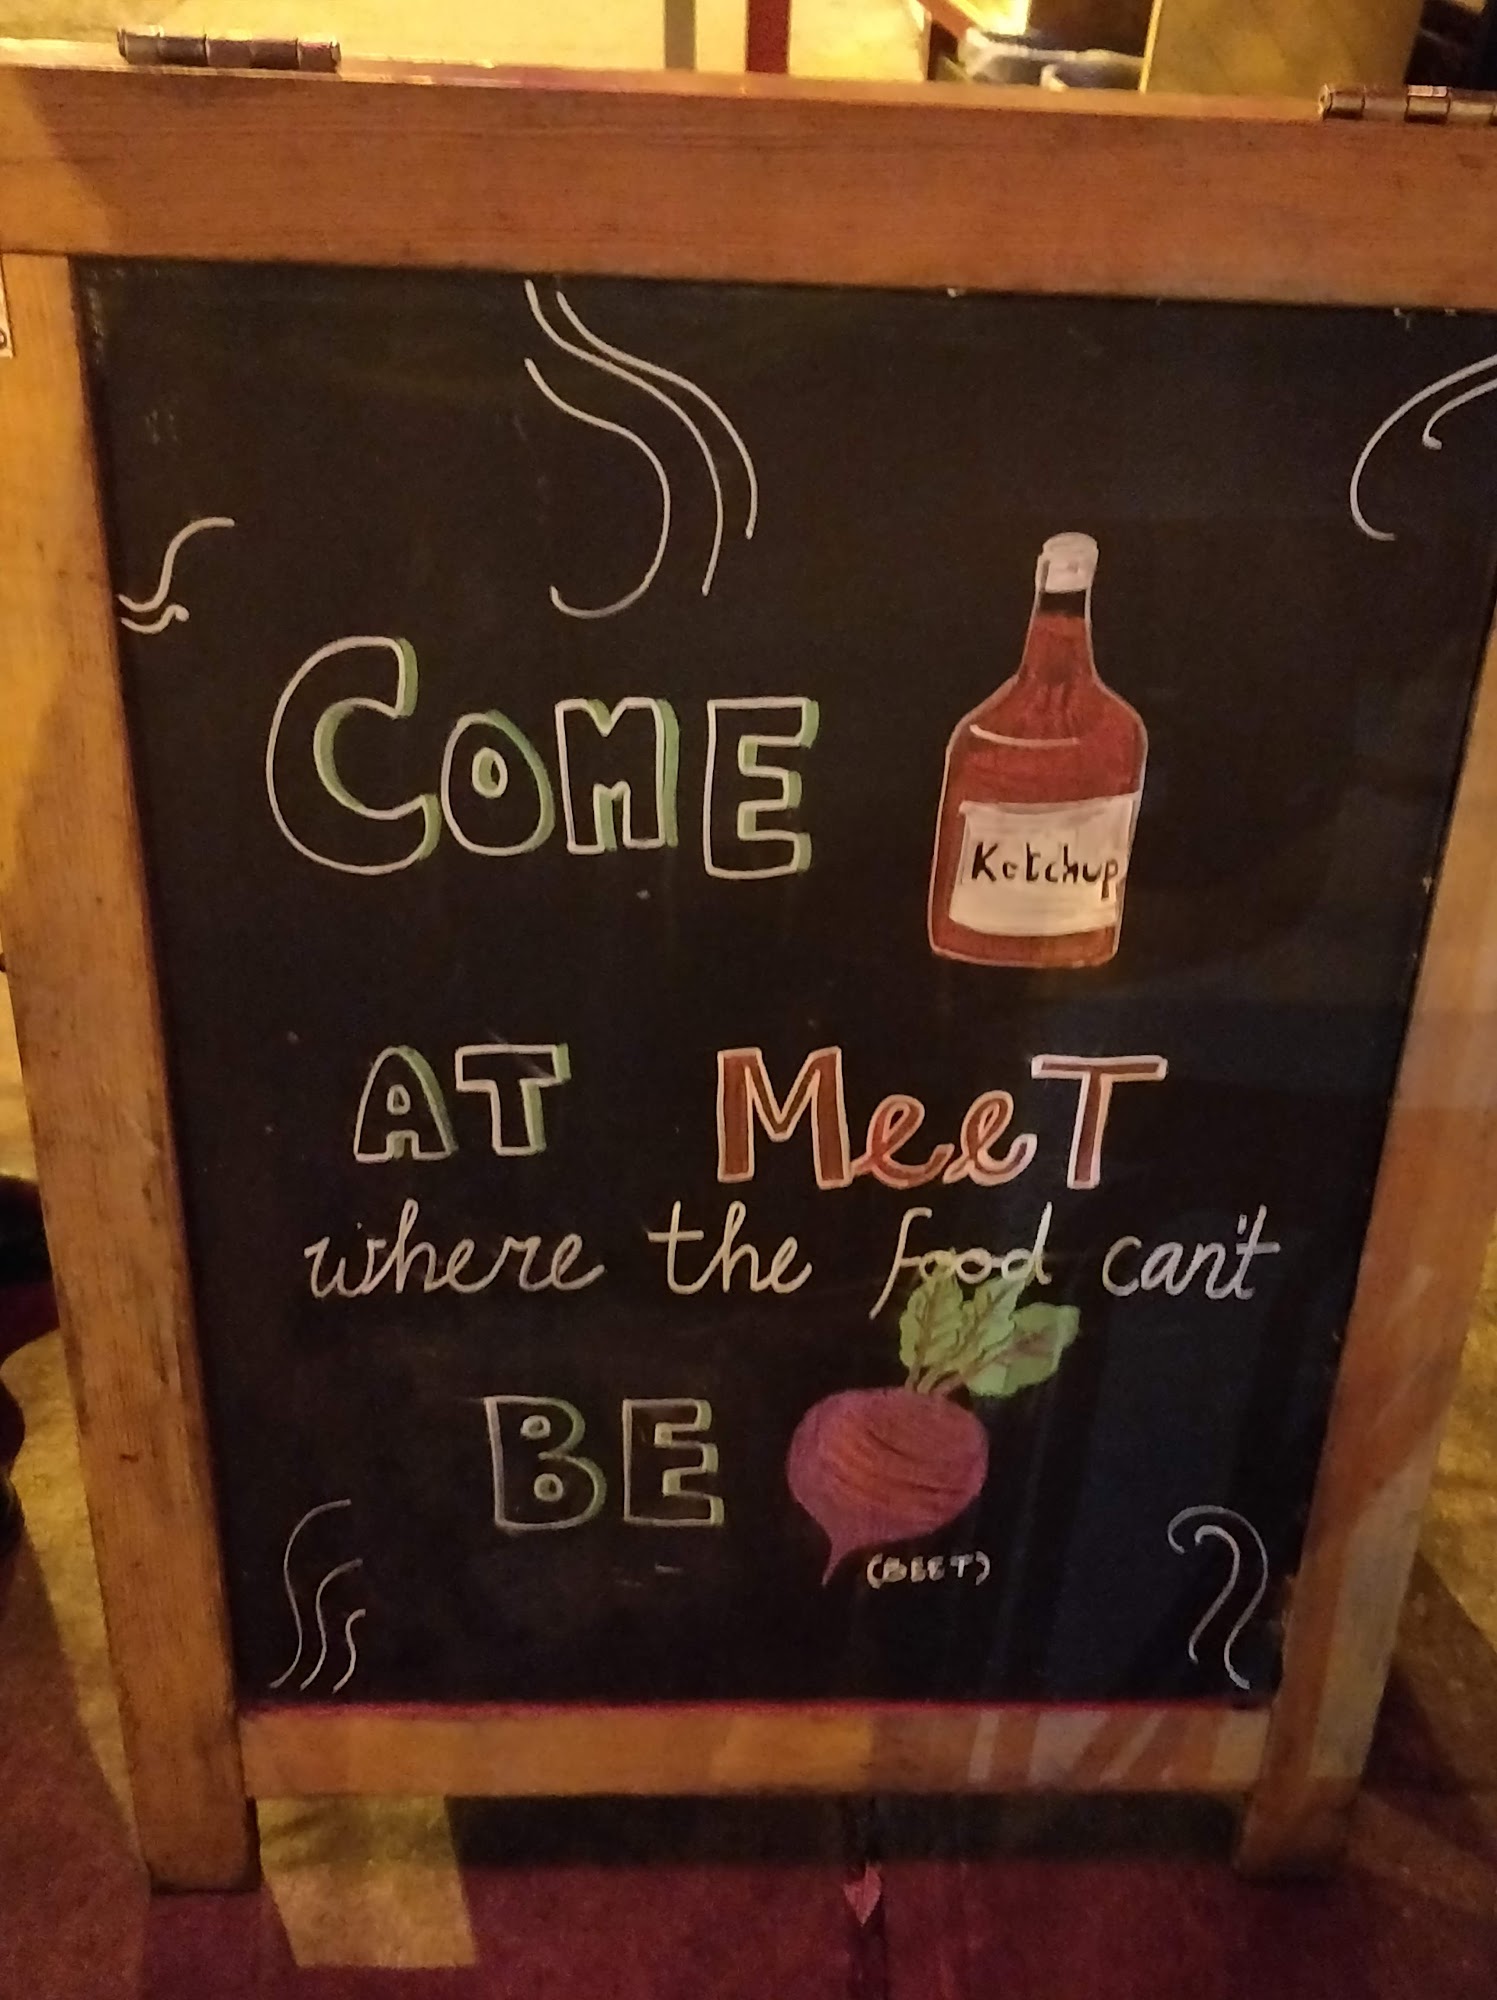 COME Ketchup
AT MeeT
where the food can't
BE
(BEET)